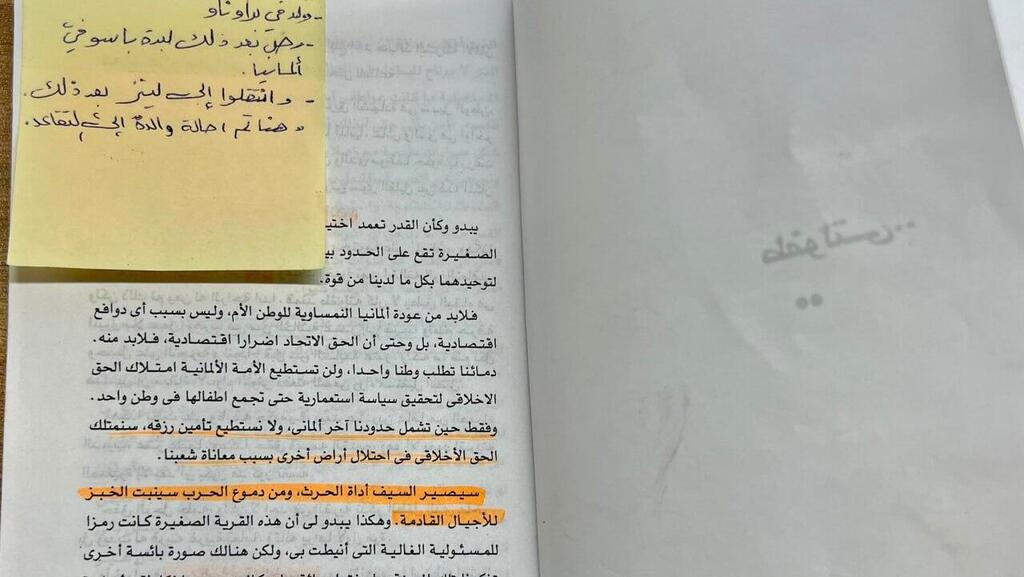 - ولد في براوناو
- رحل بعد ذلك لبلدة باسو في
ألمانيا.
- وانتقلوا إلى لينز بعد ذلك.
وهنا تم احالة والده إلى التقاعد.
يبدو وكأن القدر تعمد اختي
الصغيرة تقع على الحدود بي
لتوحيدهما بكل ما لدينا من قوة.
فلابد من عودة ألمانيا النمساوية للوطن الأم، وليس بسبب أى دوافع
اقتصادية، بل وحتى أن الحق الاتحاد اضرارا اقتصادية، فلابد منه.
دمائنا تطلب وطنا واحدا، ولن تستطيع الأمة الألمانية امتلاك الحق
الاخلاقى لتحقيق سياسة استعمارية حتى تجمع اطفالها فى وطن واحد.
وفقط حين تشمل حدودنا آخر ألمانى، ولا نستطيع تأمين رزقه، سنمتلك
الحق الأخلاقى فى احتلال أراض أخرى بسبب معاناة شعبنا.
سيصير السيف أداة الحرث، ومن دموع الحرب سينبت الخبز
للأجيال القادمة. وهكذا يبدو لى أن هذه القرية الصغيرة كانت رمزا
للمسئولية الغالية التى أنيطت بى، ولكن هنالك صورة بائسة أخرى
طفولتى..